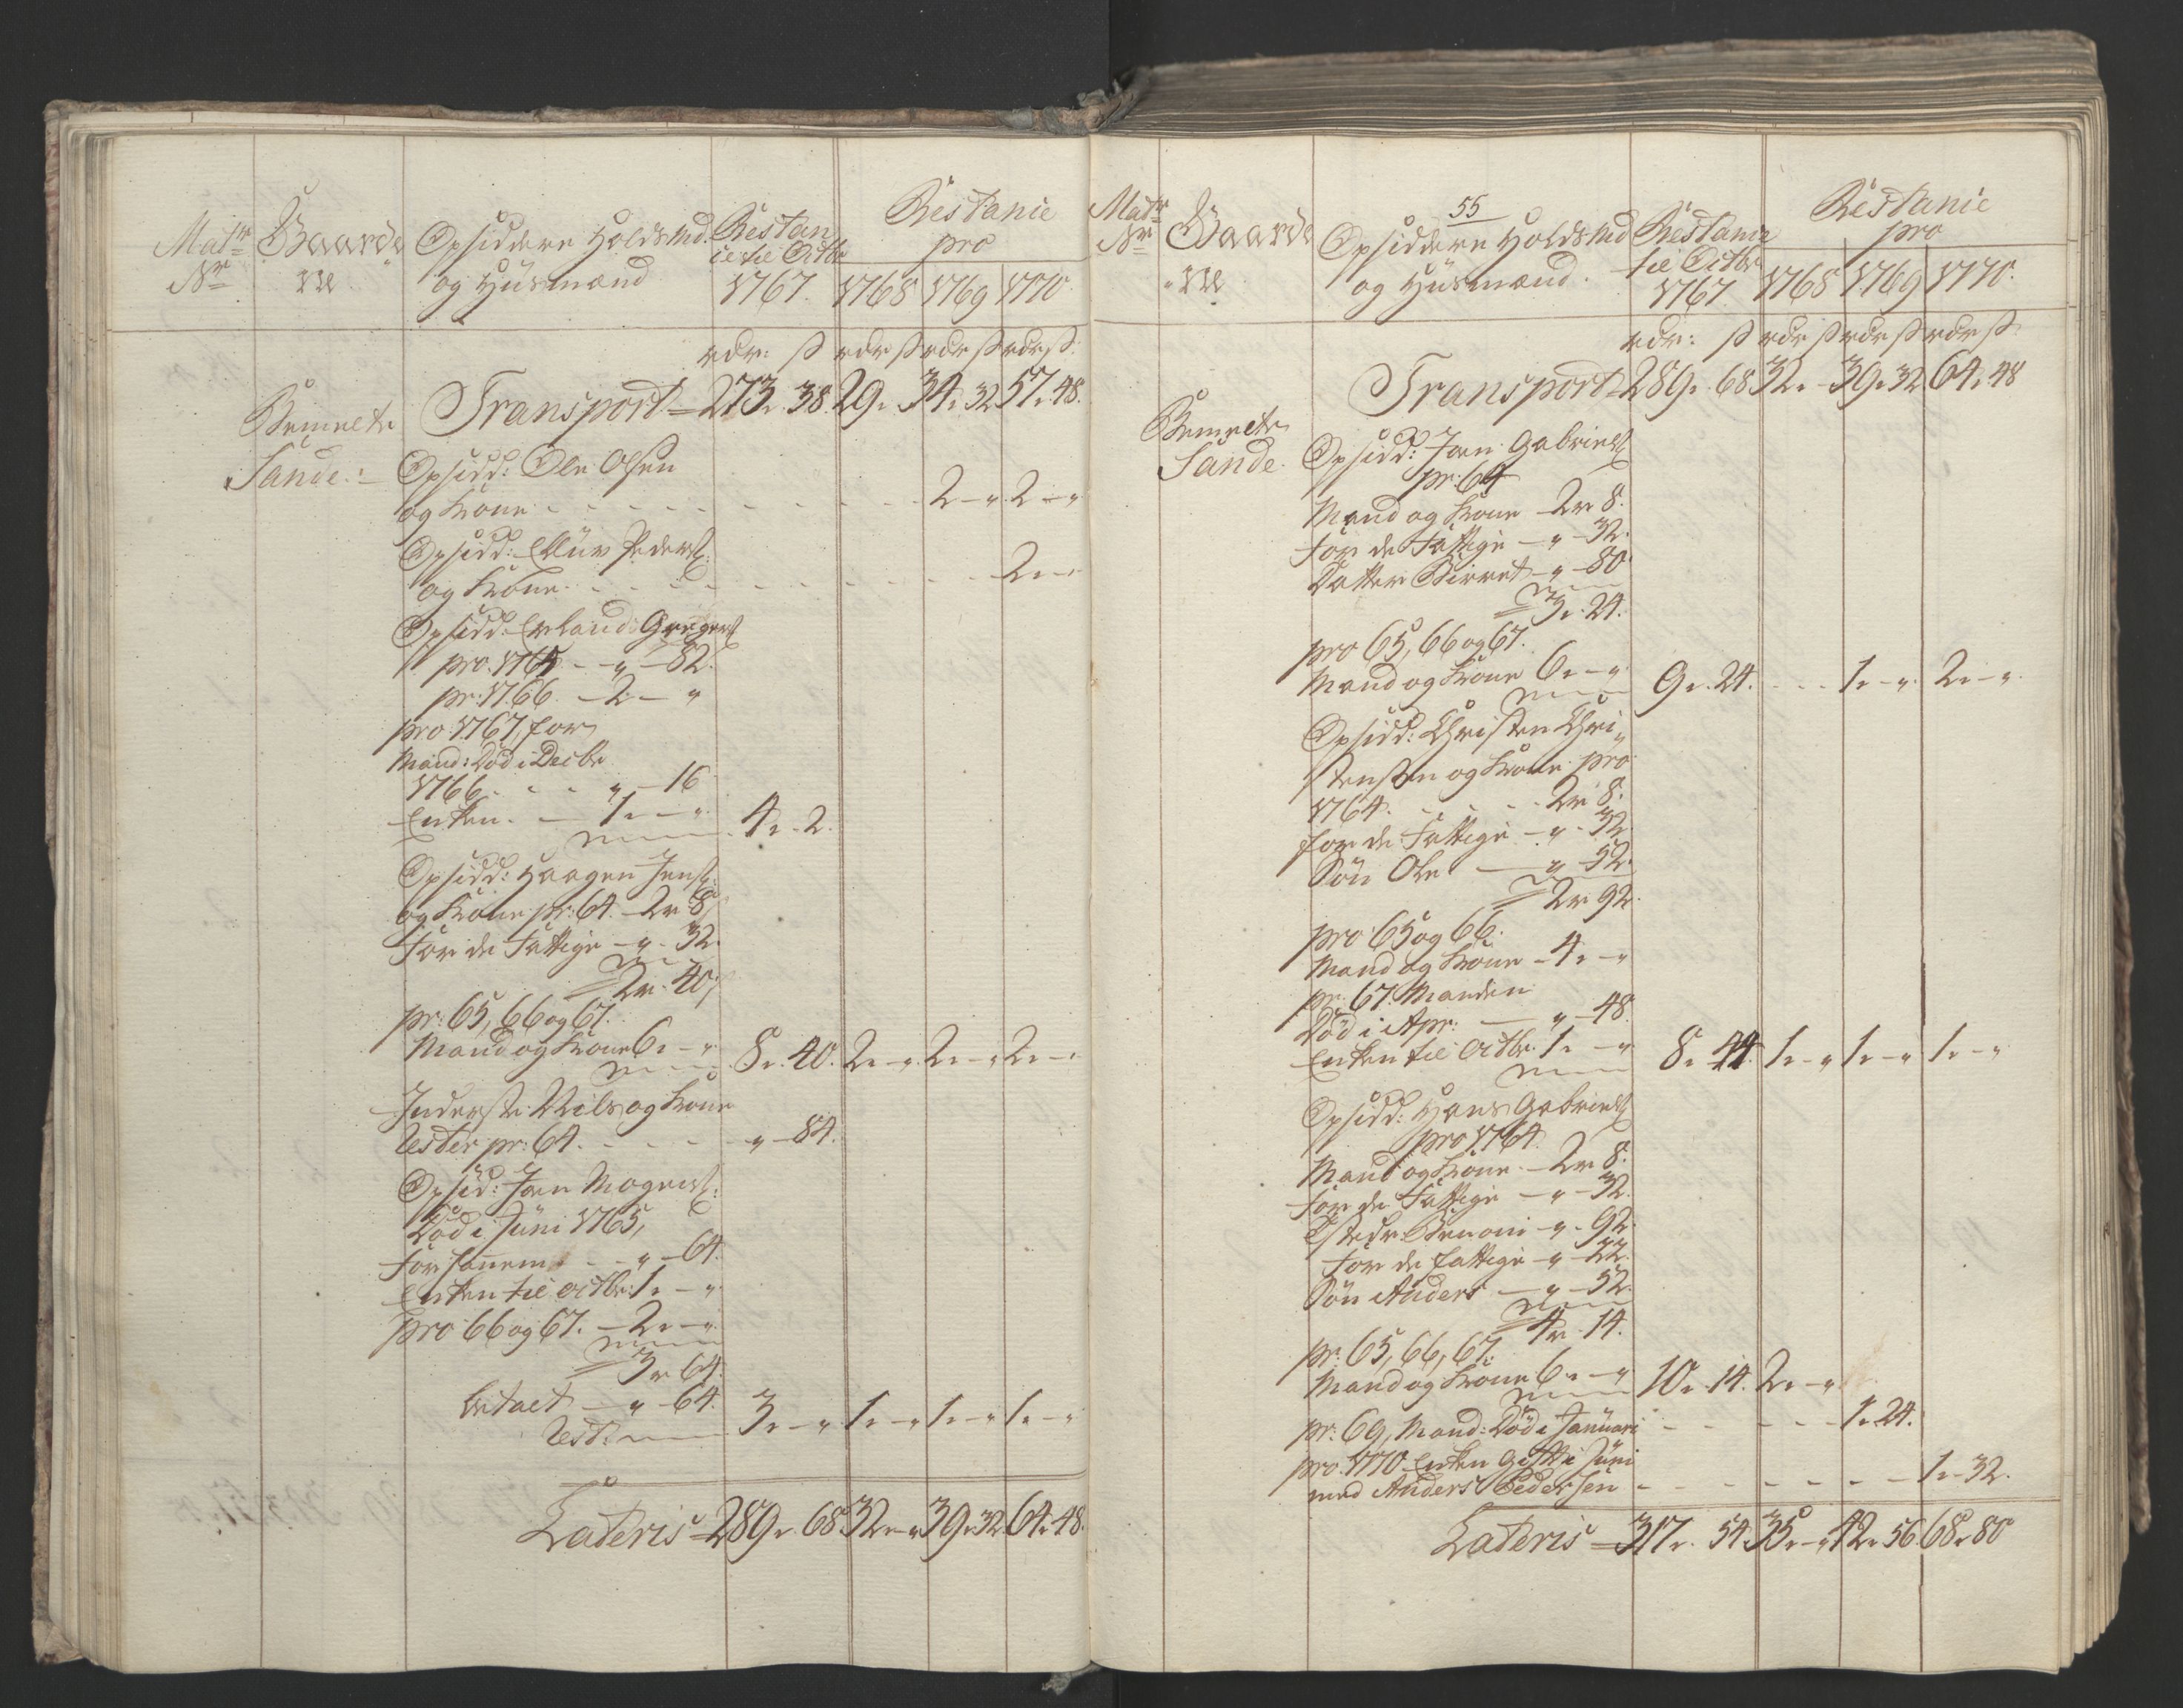 Matr Nr
Gaarde
ne
Opsiddere Holds Md.
og Huusmænd
Restan
ce til Octbr
1767.
Restance
pro
1768 1769 1770.
rdr: ß rdr ß rdr ß rdr ß.
Transport = 273. 38. 29. 34. 32 57. 48.
Bemelte
Sande. Opsidd: Ole Olsen
og Kone - - - 2 - " 2 - "
Opsidd: Peders:
og Kone - - - 2 - "
Opsidd: Erland Gregers:
pro 1765 - " - 82.
pr: 1766 - 2 - "
pro 1767, for
Mand: Död i Decbr
1766 - - - " - 16
Enken - 1 - " 4. 2.
Opsidd: Haagen Jens:
og Kone pr: 64. - 2 r 8
For de Fattige - " - 32.
2 r. 40,
pr: 65, 66 og 67.
Mand og Kone 6. - " 8. 40. 2. - " 2. - " 2. - "
Inderste Nils og Kone
Rester pr: 64. - - - " - 84.
Opsid: Joen Mogens:
Död i Juni 1765,
For sam̄e - - " - 64.
Enken til Octbr: 1. - "
pro 66 og 67. - 2. - "
3 r 64.
betalt - " - 64.
Rest: 3. - " 1. - " 1. - " 1. - "
Lateris = 289. 68. 32. - " 39. 32. 64. 48.
55
Matr Nr
Gaarde
ne
Opsiddere Holds Md
og Huusmænd.
Restance
til Octbr
1767
Restance
pro
1768 1769 1770.
rdr: ß rdr ß rdr ß rdr ß
Transport = 289. 68 32. - 39. 32 64. 48
Bemelte
Sande. Opsidd: Joen Gabriels:
pr: 64
Mand og Kone 2 r 8.
For de Fattige - " - 32.
Datter Birret - " - 80
3. 24.
pro 65, 66 og 67.
Mand og Kone 6. - " 9. 24. - - 1. - " 2. - "
Opsidd: Christen Chri„
stensen og Kone pro
1764. - - - 2 r 8.
for de Fattige - " - 32.
Sön Ole - " - 52.
2 r 92.
pro 65 og 66.
Mand og Kone - 4. - "
pr: 67. Manden
Död i Apr: - " - 48.
Enken til Octbr. 1. - " 8. 44. 1. - " 1. - " 1. - "
Opsidd: Hans Gabriels:
pro 1764.
Mand og Kone - 2 r 8.
For de Fattige - " - 32.
Benoni - " - 92.
For de fattige - " - 22.
Sön Anders - " - 52.
4 r. 14.
pr: 65, 66, 67.
Mand og Kone 6. - " 10. 14. 2. - "
pr: 69, Mand: Död i Januari - - - 1. 24.
pro 1770 Enken Gift i Juni
med Anders Pedersen - - - 1. 32.
Lateris = 317. 54. 35. - " 42. 56. 68. 80